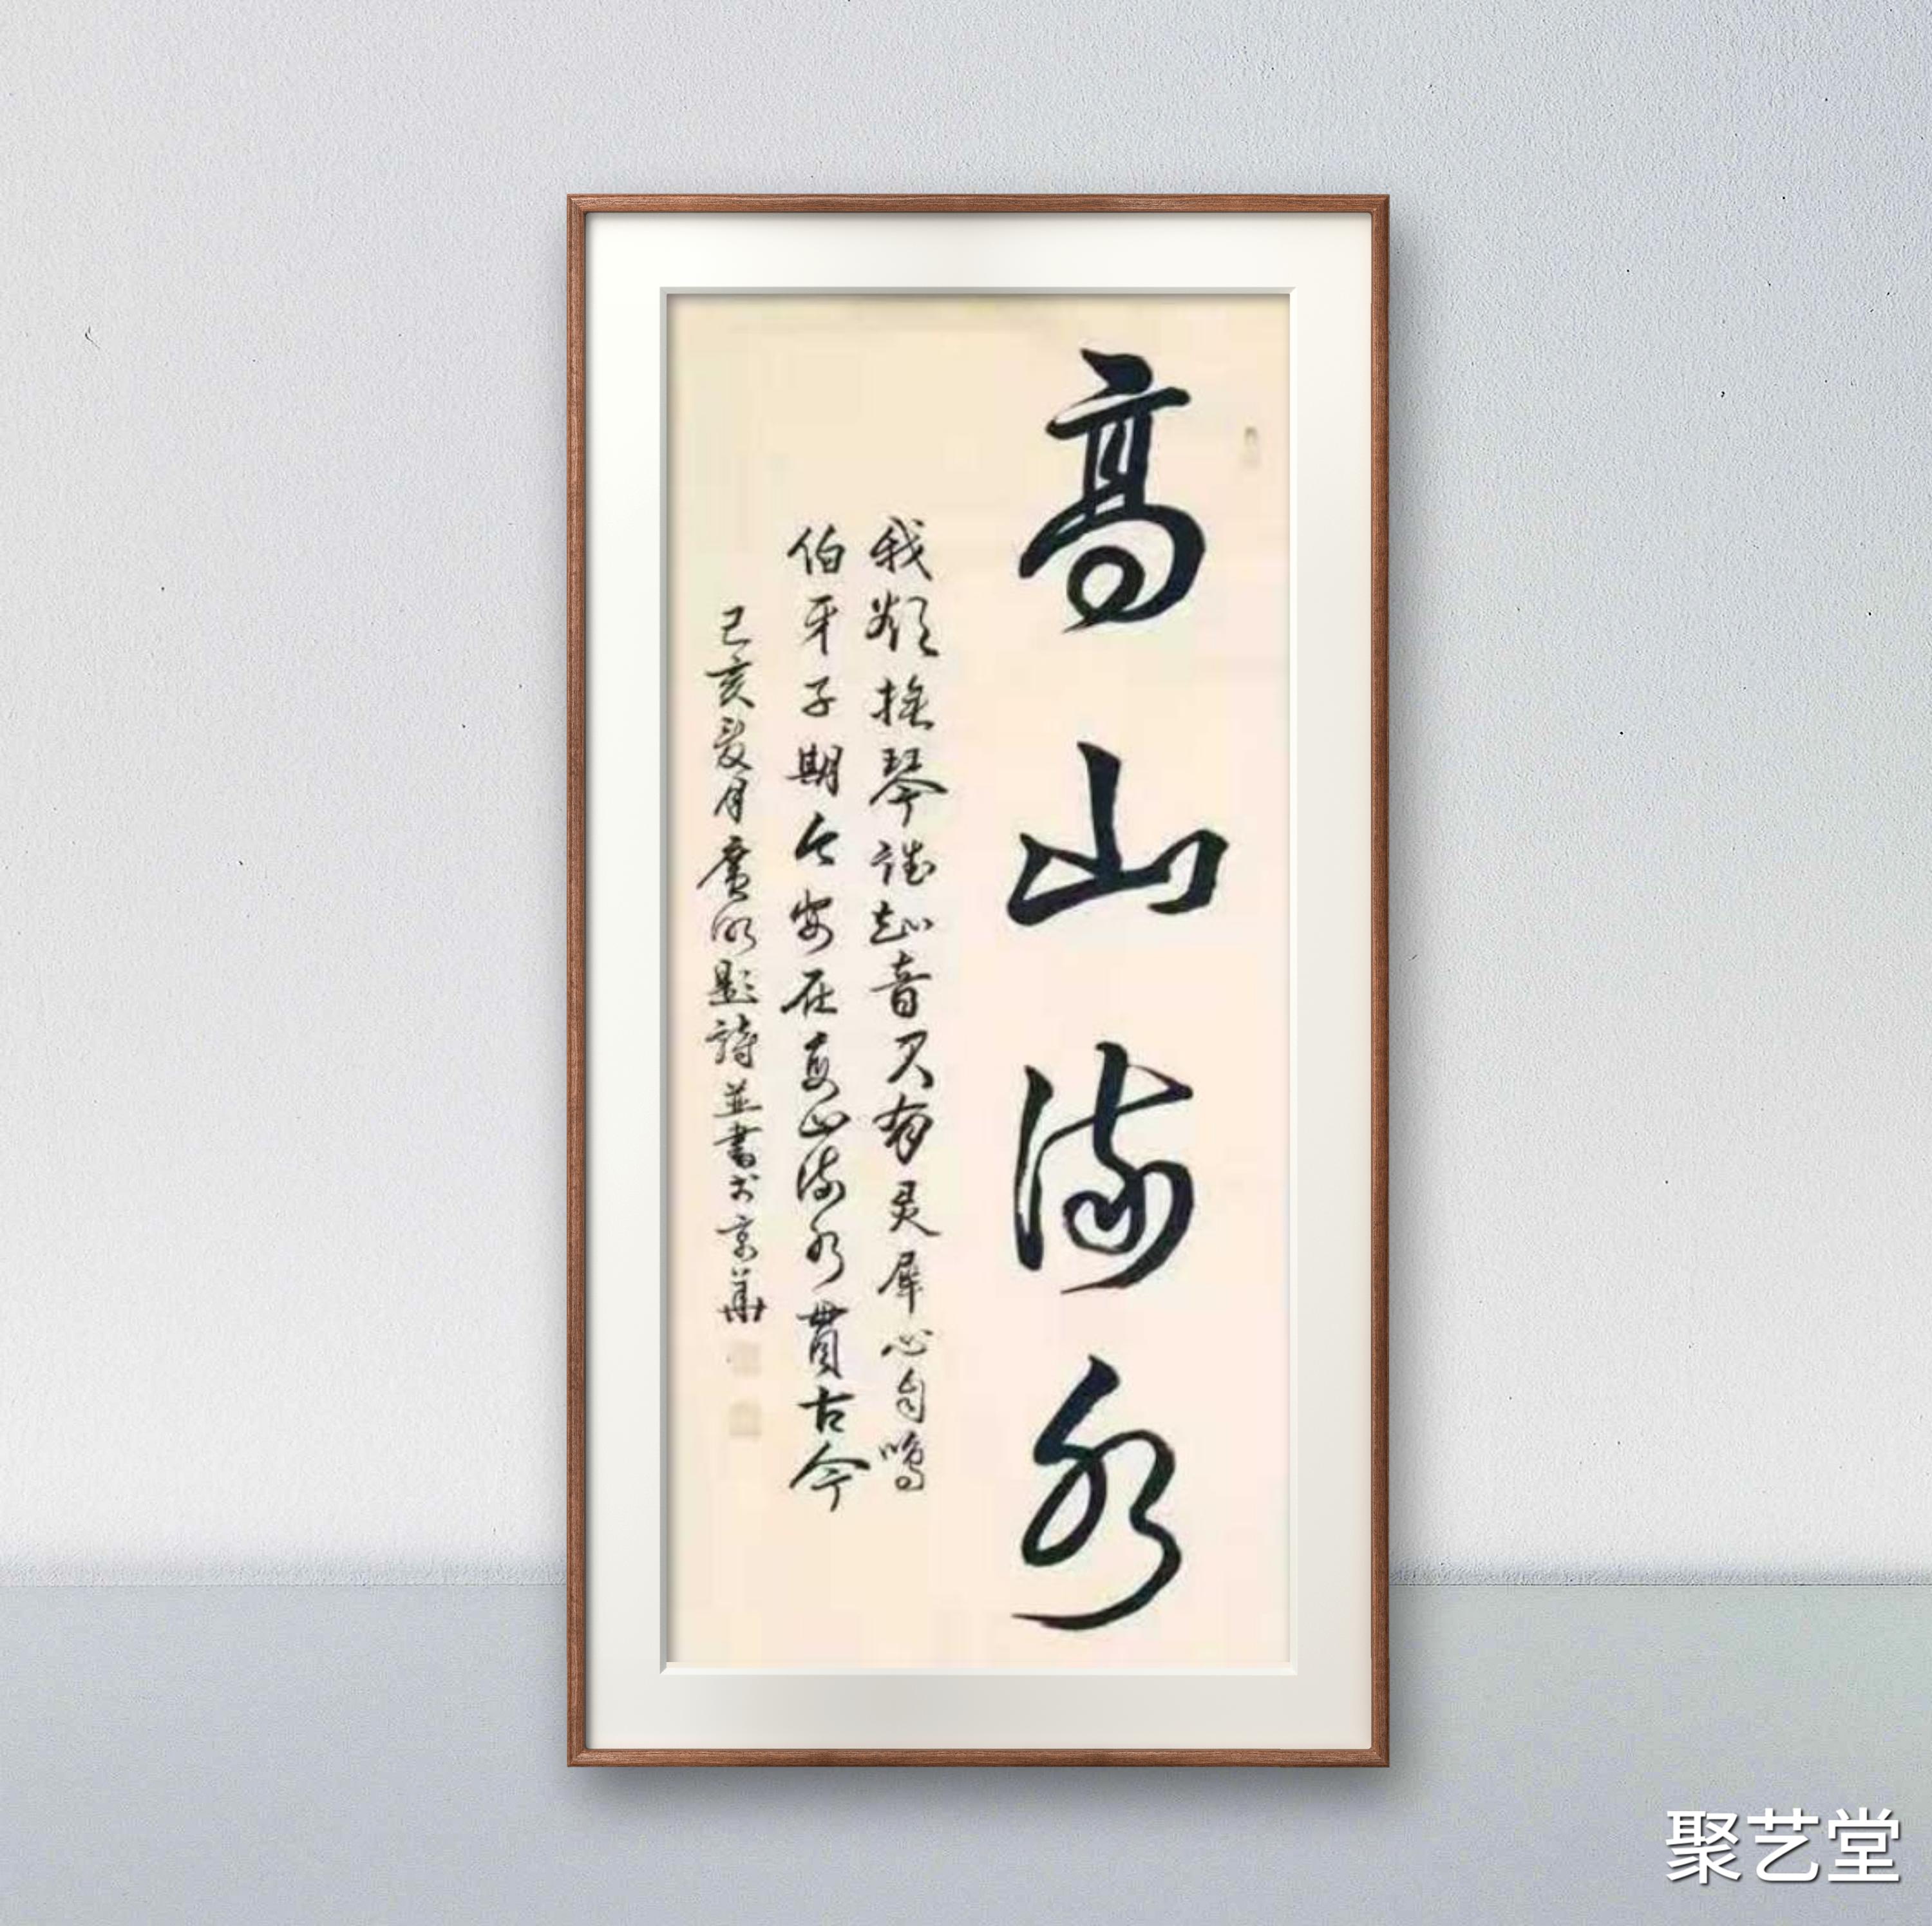 高山流水
我欲撫琴誰知音只有灵犀心自鳴
伯牙子期今安在高山流水貫古今
己亥夏月廣題詩並書於京華
聚艺堂